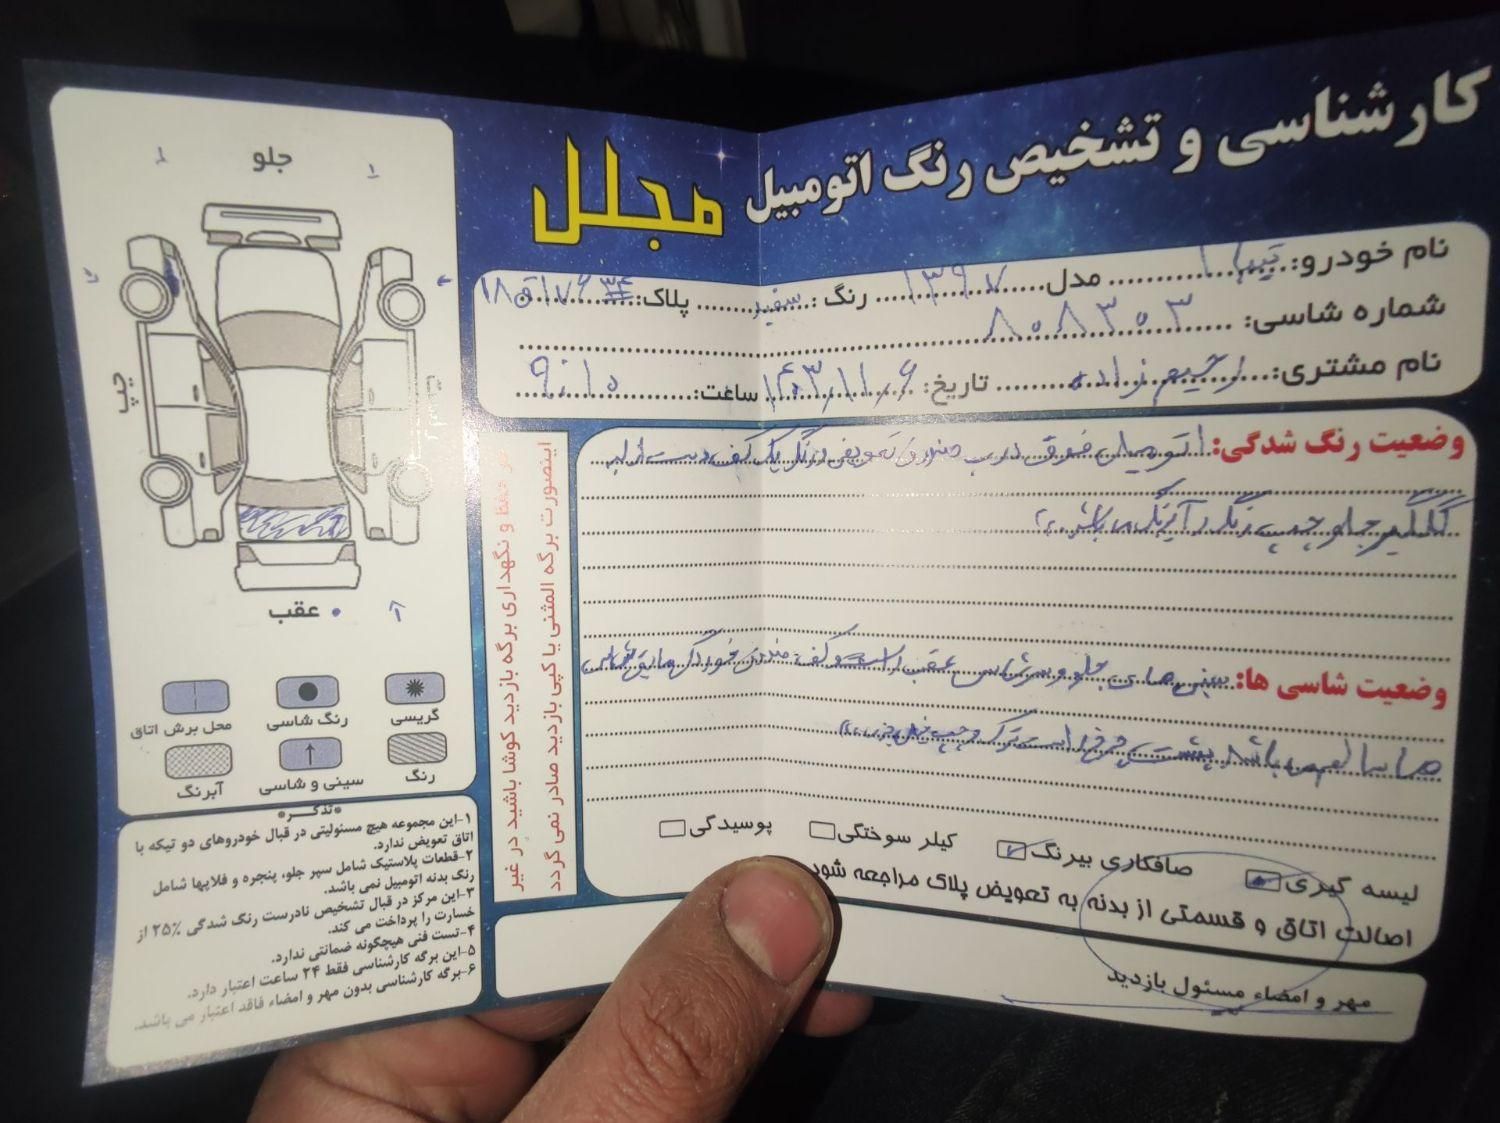 کارشناسی و تشخیص رنگ اتومبیل مجلل
نام خودرو: تیبا ۱ مدل ۱۳۹۷ رنگ: سفید پلاک:
شماره شاسی: ۸۰۸۳۰۳
نام مشتری: رحیم زاده تاریخ: ۱۴۰۳/۱۱/۶ ساعت: ۹:۱۰
وضعیت رنگ شدگی: اتومبیل فوق درب صندوق تعویض و رنگ یک کف دست از لبه
گلگیر جلو چپ رنگ و آبرنگ می باشد
وضعیت شاسی ها: سینی های جلو و سرشاسی عقب راست و کف صندوق خوردگی مابقی شاسی
ها سالم می باشد پشت چرخ راست و چپ
لیسه گیری صافکاری بیرنگ کیلر سوختگی پوسیدگی
اصالت اتاق و قسمتی از بدنه به تعویض پلاک مراجعه شود
مهر و امضاء مسئول بازدید
در حفظ و نگهداری برگه بازدید کوشا باشید در غیر
اینصورت برگه المثنی یا کپی بازدید صادر نمی گردد
جلو
چپ
عقب
گریسی
رنگ شاسی
محل برش اتاق
رنگ
سینی و شاسی
آبرنگ
*تذکر*
۱-این مجموعه هیچ مسئولیتی در قبال خودروهای دو تیکه با
اتاق تعویض ندارد.
۲-قطعات پلاستیک شامل سپر جلو، پنجره و فلاپها شامل
رنگ بدنه اتومبیل نمی باشد.
۳-این مرکز در قبال تشخیص نادرست رنگ شدگی ۲۵٪ از
خسارت را پرداخت می کند.
۴-تست فنی هیچگونه ضمانتی ندارد.
۵-این برگه کارشناسی فقط ۲۴ ساعت اعتبار دارد.
۶-برگه کارشناسی بدون مهر و امضاء فاقد اعتبار می باشد.